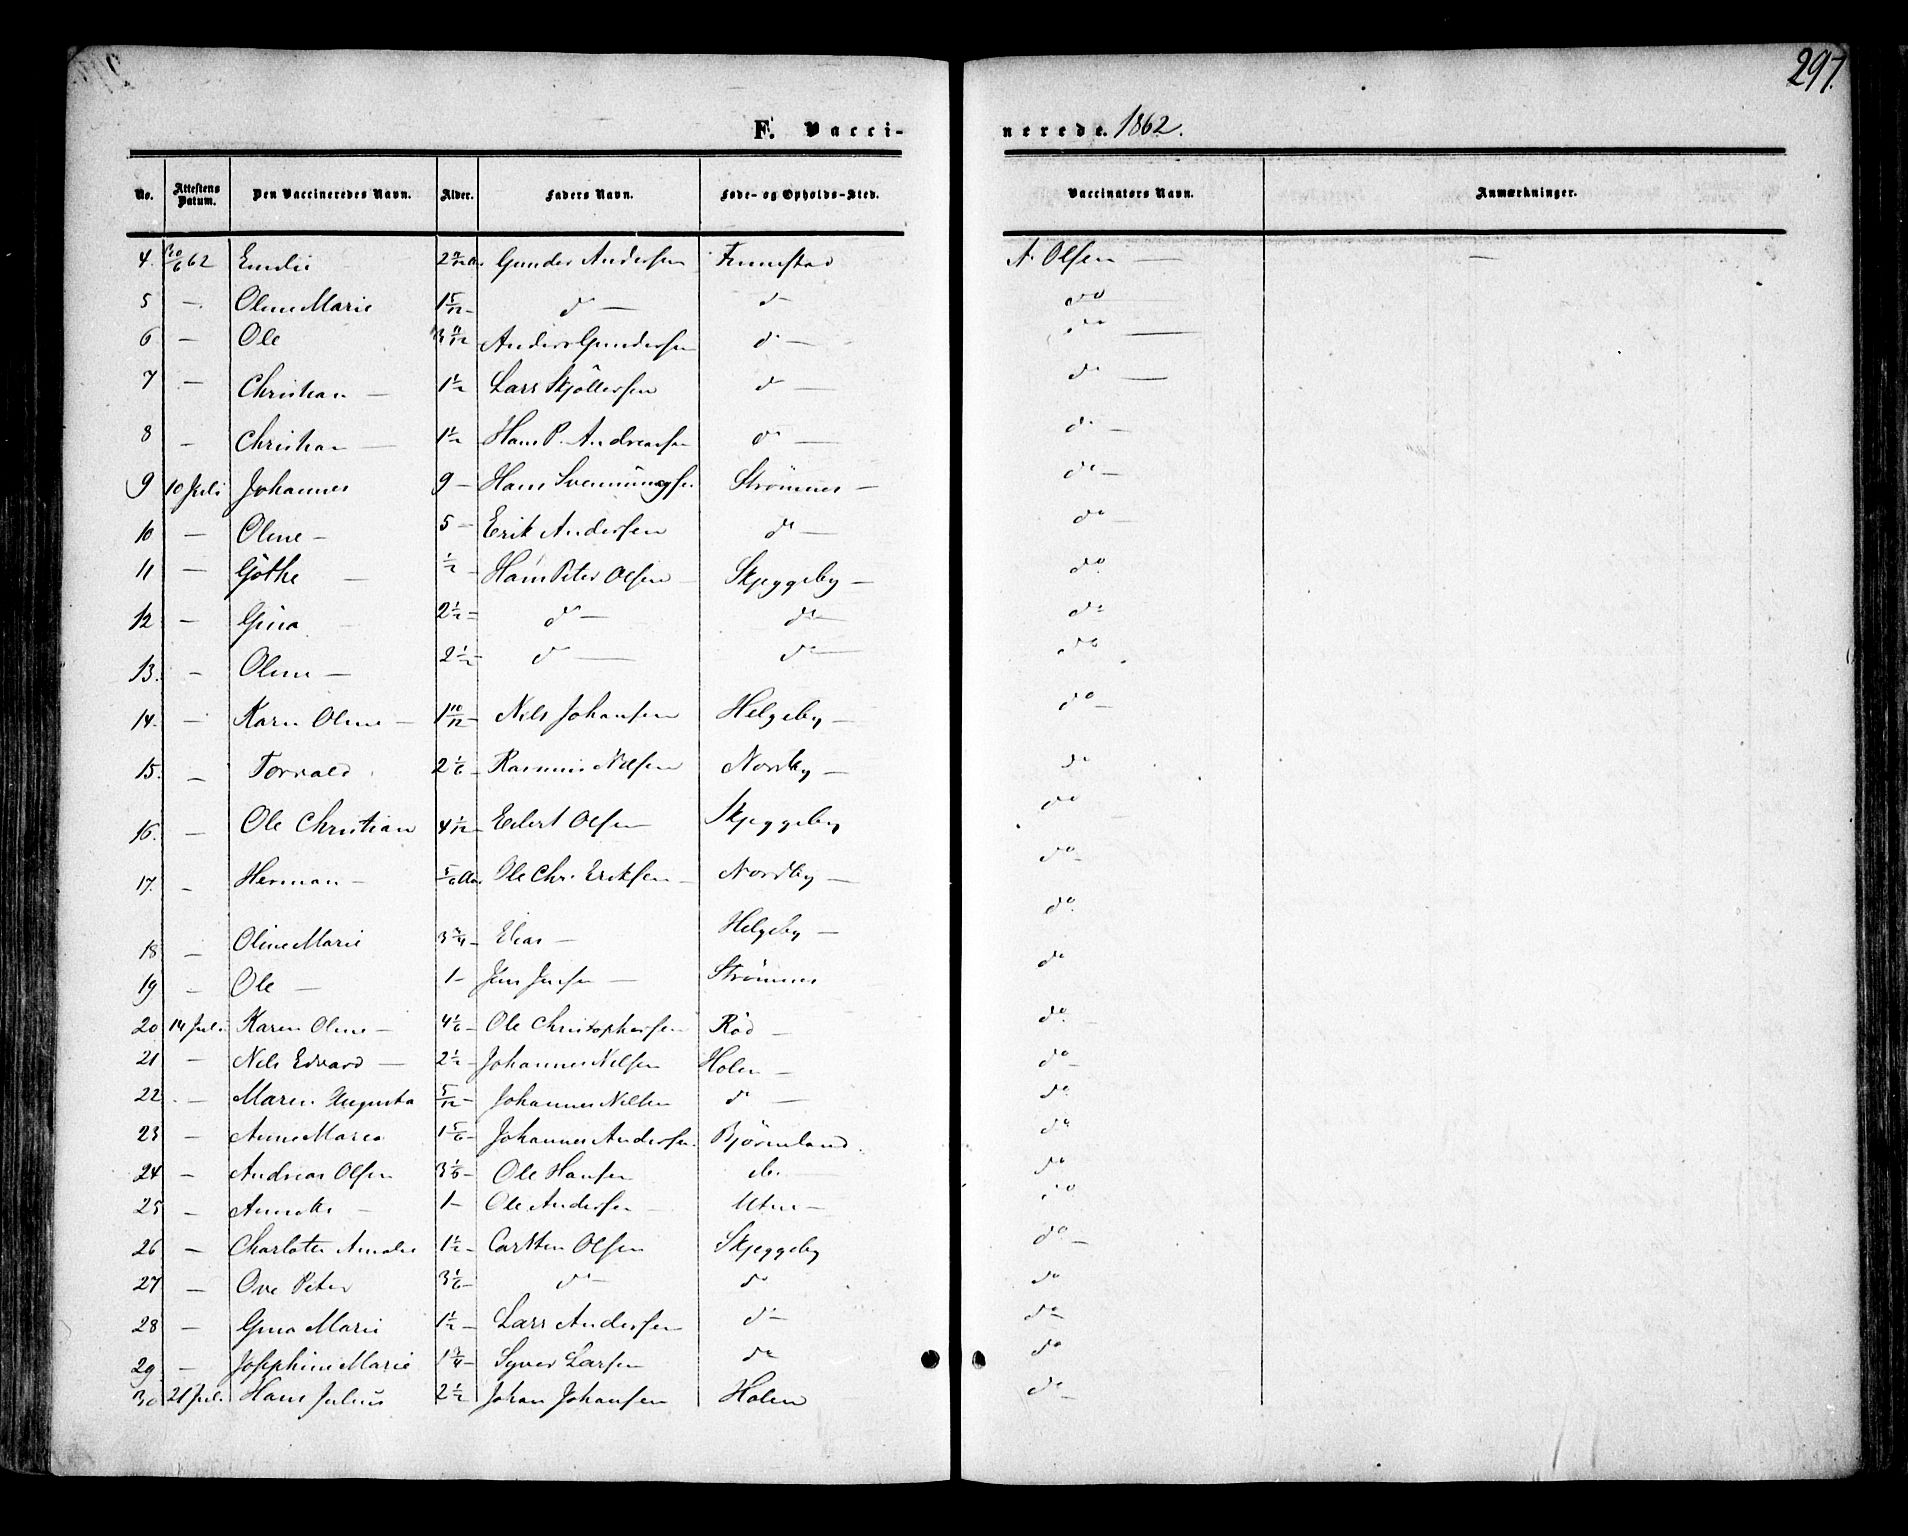 297.
F. Vacci-nerede. 1862.
No. Attestens Datum. Den Vaccineredes Navn. Alder. Faders Navn. Føde- og Opholds-Sted. Vaccinators Navn. Anmærkninger.
4. 62 Emilie Gunder Andersen A. Olsen —
5 — Oline Marie 1 5/12 — do — do do
6 — Ole Anders Gundersen do — do —
7 — Christian — 1 1/2 Lars Skjöllersen do — do —
8 — Christian — 1 1/2 Hans P. Andreasen do — do —
9 10 Juli Johannes 9 — Hans Svenningsen Strömnes — do —
10 — Oline — 5 — Erik Andersen do — do —
11 — Göthe — 1/2 — Hans Peter Olsen — Skjeggeby — do
12 — Gina — 2 1/2 — do — do — do
13. — Oline — 2 1/2 — do — do — do
14. — Karen Oline — 1 10/12 — Nils Johansen Helgeby — do —
15. — Torvald 2 1/6 Rasmus Nilsen Nordby — do
16. — Ole Christian 4 1/12 — Edert Olsen Skjeggeby do
17. — Herman — 5/6 Aar Ole Chr. Eriksen — Nordby — do —
18 — Oline Marie 3 3/4 — Elias — Helgeby — do
19 — Ole — 1 — Jens Jensen — Strömnes do
20 14 Juli Karen Oline — 4 1/6 — Ole Christophersen Röd — do —
21 — Nils Edvard — 2 1/2 — Johannes Nilsen Holen — do —
22 — Maren Augusta 5/12 — Johannes Nilsen do — do
23 — Anne Maria 1 5/6 — Johannes Andersen Björneland. do
24 — Andreas Olsen 3 1/6 — Ole Hansen do. — do
25 — Annette — 1 — Ole Andersen — Utne — do
26 — Charlotte Amalie 1 1/2 — Carsten Olsen Skjeggeby do —
27 — Ove Peter 3 1/6 — do — do do
28 — Gina Marie 1 1/2 — Lars Andersen do — do —
29 — Josephine Marie 1 3/4 — Syver Larsen do do
30 21 Juli Hans Julius 2 1/2 Johan Johansen Holen do —